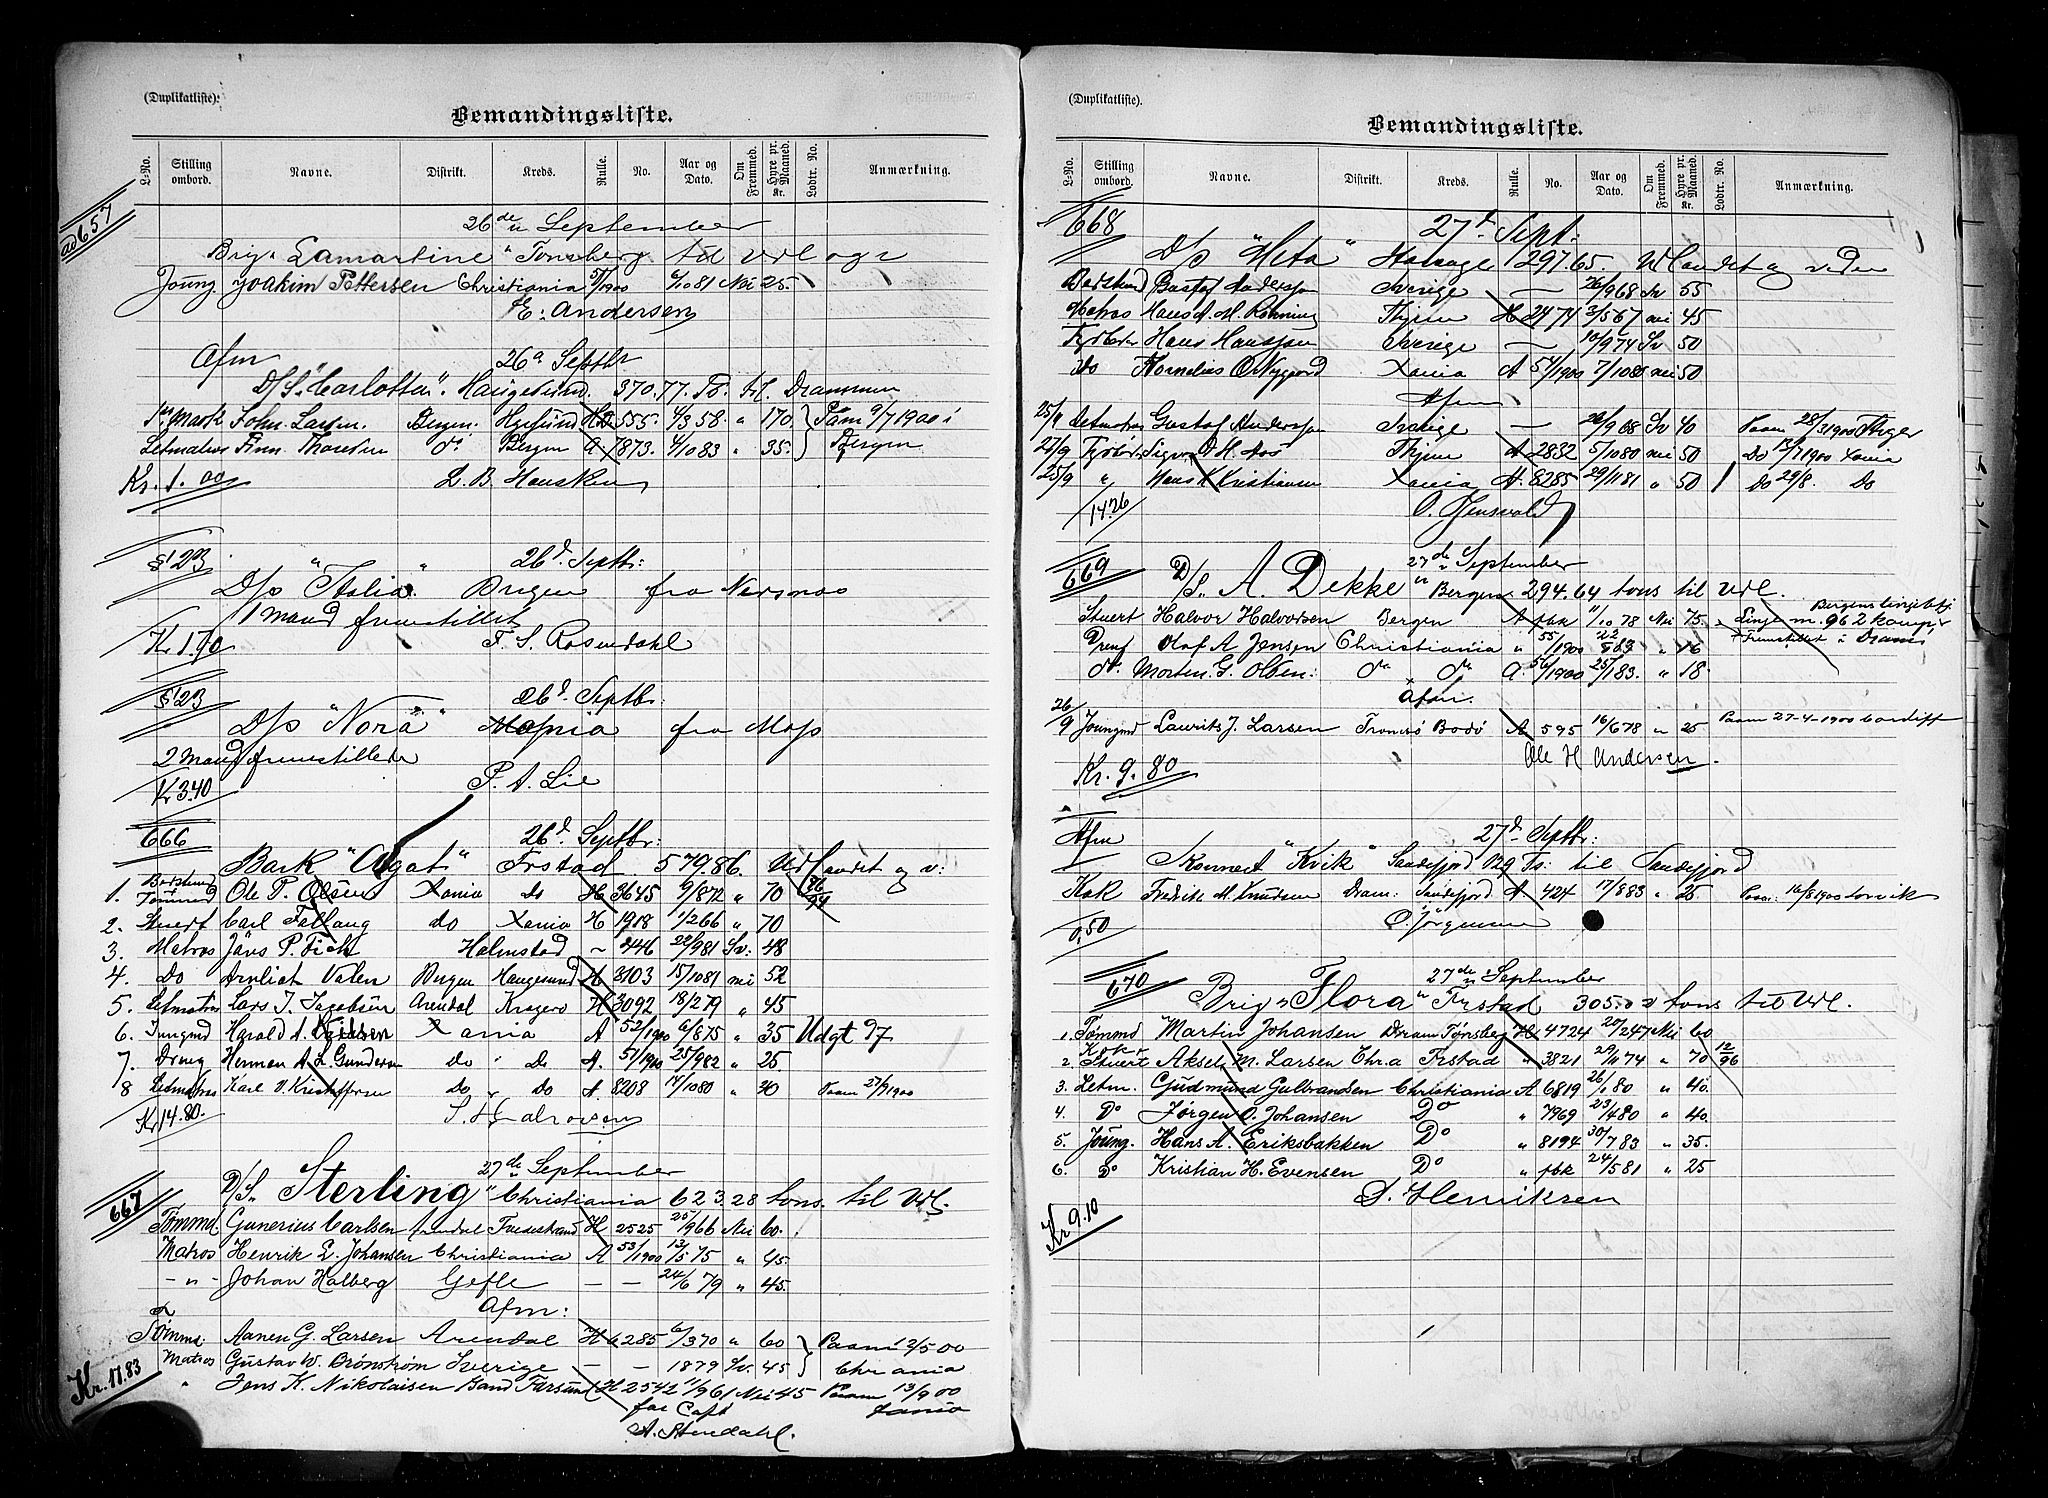 (Duplikatliste).
Bemandingsliste.
L-No. Stilling ombord. Navne. Distrikt. Kreds. Rulle. No. Aar og Dato. Om Fremmed. Hyre pr. Maaned. Kr. Lodtr. No. Anmærkning.
ad 657
26de September
Brig "Lamartine" Tønsberg til Udl og
Joung Joakim Pettersen Christiania 57/1900 6/10 81 Nei 25.
E. Andersen
Afm 26d Septbr
D/S. "Carlotta". Haugesund. 370.77. To. til. Drammen
John Larsen. Bergen. Hgesund 555. 4/3 58. " 170. Paam 9/7 1900 i
Letmatros Finn Thoresen do. Bergen A. 7873. 4/10 83 " 35. Bergen
Kr. 1.00 L. B. Hansken
§ 123 26d. Septbr:
D/s "Italia" Bergen fra Nersnæs
1 mand fremstillet
Kr 1.70 F. S. Rosendahl
§ 123 26d. Septbr:
D/s "Nora" fra Moss
2 mand fremstillede
Kr 3.40 P. A. Lie
666 26d. Septbr:
Bark "Agat" Frstad 579.86. Udlandet og v:
1. Badsmd Tømmrmd Ole P. Olsen Xania Do H 3645 9/8 72 " 70 96/94
2. Stuert Carl Fallang do Xania H 1918 1/2 66 " 70
3. Matros Jäns P. Fich Halmstad – 446 22/9 81 Sv: 48
4. Do Arnliot Valen Bergen Haugesund H 3103 15/10 81 nei 52
5. Letmatros Lars J. Jagobsen Arendal Kragerø H 3092 18/2 79 " 45
6. Jungmd Harald A. Nielsen Xania A 52/1900 6/8 75 " 35 Udgt 97
7. Dreng Herman A. L. Gundersen do Do A. 57/1900 25/9 82 " 25
8 Letmatros Karl O Kristoffersen do Do A 8208 14/10 80 " 40 Paam 27/9 1900
Kr. 14.80.
667 27de September
D/S. "Sterling" Christiania 623.28 tons. til Udl.
Tømmd. Gunerius Carlsen Arendal Tvedestrand H 2525 25/9 66 Nei 60.
Matros Henrik E. Johansen Christiania A 53/1900 13/5 75 " 45.
– " – Johan Halberg Gefle – – 24/6 79 " 45.
Afm:
Tømmd. Aanen G. Larsen Arendal H 6285 6/3 70 " 60 Paam 12/5 00
Matros Gustav W. Brønstrøm Sverige – – 1879 Sv. 45 Chrania
" Jens K. Nikolaisen Sand Farsund H 2542 11/9 61 Nei 45 Paam 13/9 00
Xania
Kr. 17.83
for Capt
A. Stendahl.
(Duplikatliste).
Bemandingsliste.
L-No. Stilling ombord. Navne. Distrikt. Kreds. Rulle. No. Aar og Dato. Om Fremmed. Hyre pr. Maaned. Kr. Lodtr. No. Anmærkning.
668 27d. Sept:
D/s "Heta" 1297.65. Udlandet og videre
Baadsmd Gustaf Andersson Sverige – 26/9 68 Sv 55
Matros Hans A. M. Rønning Thjem H 2474 3/5 67 nei 45
Fyrbøder Hans Hansson Sverige – 10/9 74 Sv 50
Do Kornelius O. Nygjord Xania A 54/1900 7/10 80 nei 50
Afm
25/9 Letmatros Gustaf Andersson Sverige – 26/9 68 Sv 40 Paam 28/3 1900
27/9 Fyrbøder A 2832 5/10 80 nei 50 Do 13/7 1900 Xania
25/9 " Hans K Kristiansen Xania A. 8285 29/11 81 " 50 Do 29/8. Do
14.26
669 27de September
D/S. "A. Dekke" Bergen 294.64 tons til Udl.
Stuert Halvor Halvorsen Bergen A pbk 11/10 78 Nei 75.
Dreng Olaf A Jensen Christiania " 55/1900 " 16
do. Morten G. Olsen: do do A. 56/1900 25/1 83. " 18.
Fremstillet i Dram
Afm.
26/9 Joungmd Laurits J. Larsen Tromsø Bodø A 595 16/6 78 " 25 Paam 27-4-1900 Cardiff
Ole H Andersen.
Kr. 9.80
Afm 27d. Septbr:
Skonnert "Kvik" Sandefjord 119 Ts: til Sandefjord
Kok Fredrik M. Knudsen Dram: Sandefjord A 424 17/8 83 " 25. Paam: 16/8 1900 Larvik
O. Jørgensen
0,50
670 27de September
Brig "Flora" Frstad 305.02 tons til Udl.
1. Tømmd Martin Johansen Dram Tønsberg H 4724 20/2 47 Nei 60
2. Kok & Stuert Aksel M. Larsen Chr.a Frstad " 3821 29/11 74 " 70 12/96
3. Letm. Gudmund Gulbrandsen Christiania A 6819 26/1 80 " 40.
4. Do Jørgen O. Johansen Do " 7969 23/4 80 " 40.
5. Joung. Hans A. Eriksbakken Do " 8194 30/7 83 " 35.
6. Do Kristian H. Evensen Do " pbk 24/5 81 " 25
Henriksen
Kr 9.10